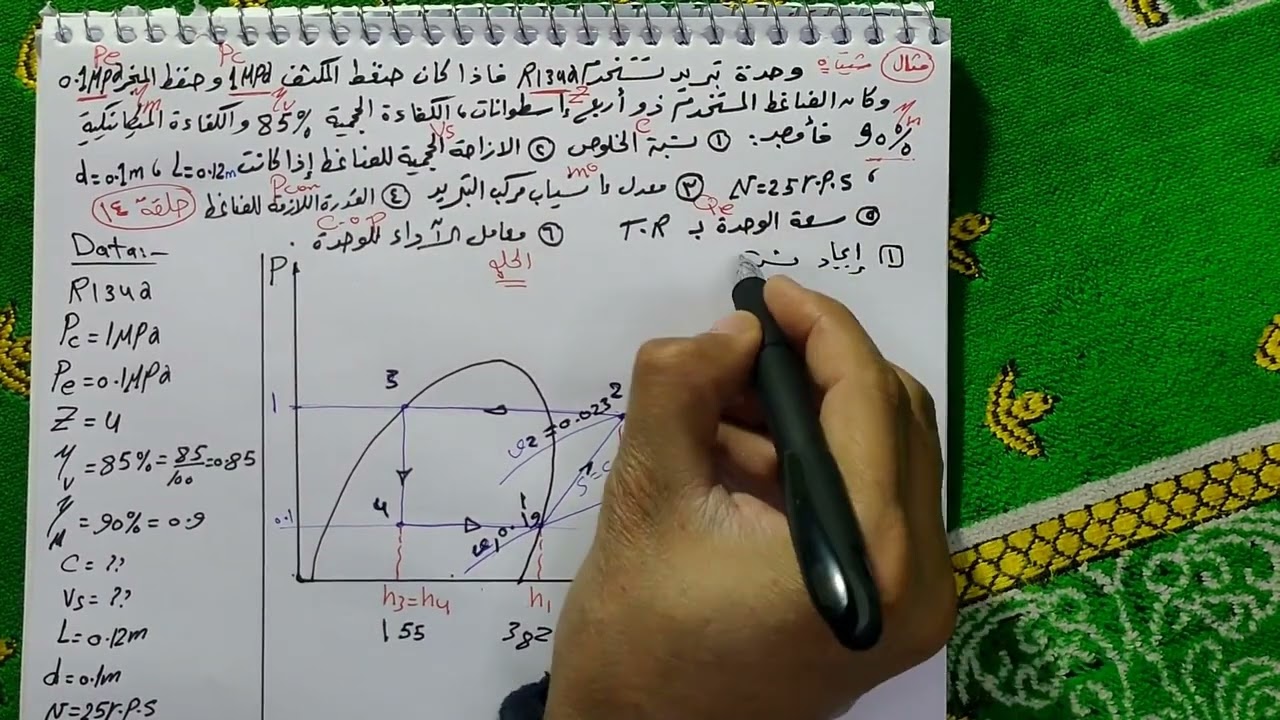 Pe Pc
مثال شتيانه وحدة تبريد تستخدم R134a فاذا كان ضغط المكثف 1MPa وضغط المبخر 0.1MPa
وكان الضاغط المستخدم ذو أربع إسطوانات، الكفاءة الحجمية 85% والكفاءة الميكانيكية
90% فأوجد: ① نسبة الخلوص ② الازاحة الحجمية للضاغط إذا كانت L=0.12m ، d=0.1m
، N=25r.p.s ③ معدل انسياب مركب التبريد ④ القدرة اللازمة للضاغط حلقة 14
⑤ سعة الوحدة بـ T.R ⑥ معامل الآداء للوحدة.
الحل
1 إيجاد
Data:-
R134a
Pc=1MPa
Pe=0.1MPa
Z=4
ηv=85%=85/100=0.85
ηM=90%=0.9
C=??
Vs=??
L=0.12m
d=0.1m
N=25r.p.s
P
3
2
1
v2=0.023
4
1
0.1
v1 0.19
h3=h4
h1
155
382